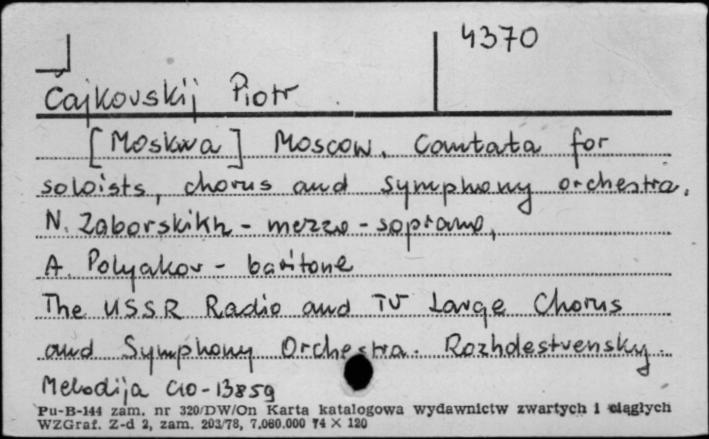 4370
Čajkovskij Piotr
[Moskwa] Moscow. Cantata for
soloists, chorus and symphony orchestra.
N. Zaborskikh - mezzo-soprano,
A. Polyakov - baritone
The USSR Radio and TV Large Chorus
and Symphony Orchestra. Rozhdestvensky.
Melodija C10-13859
Pu-B-144 zam. nr 320/DW/On Karta katalogowa wydawnictw zwartych i ciągłych
WZGraf. Z-d 2, zam. 203/78, 7.060.000 74 × 120